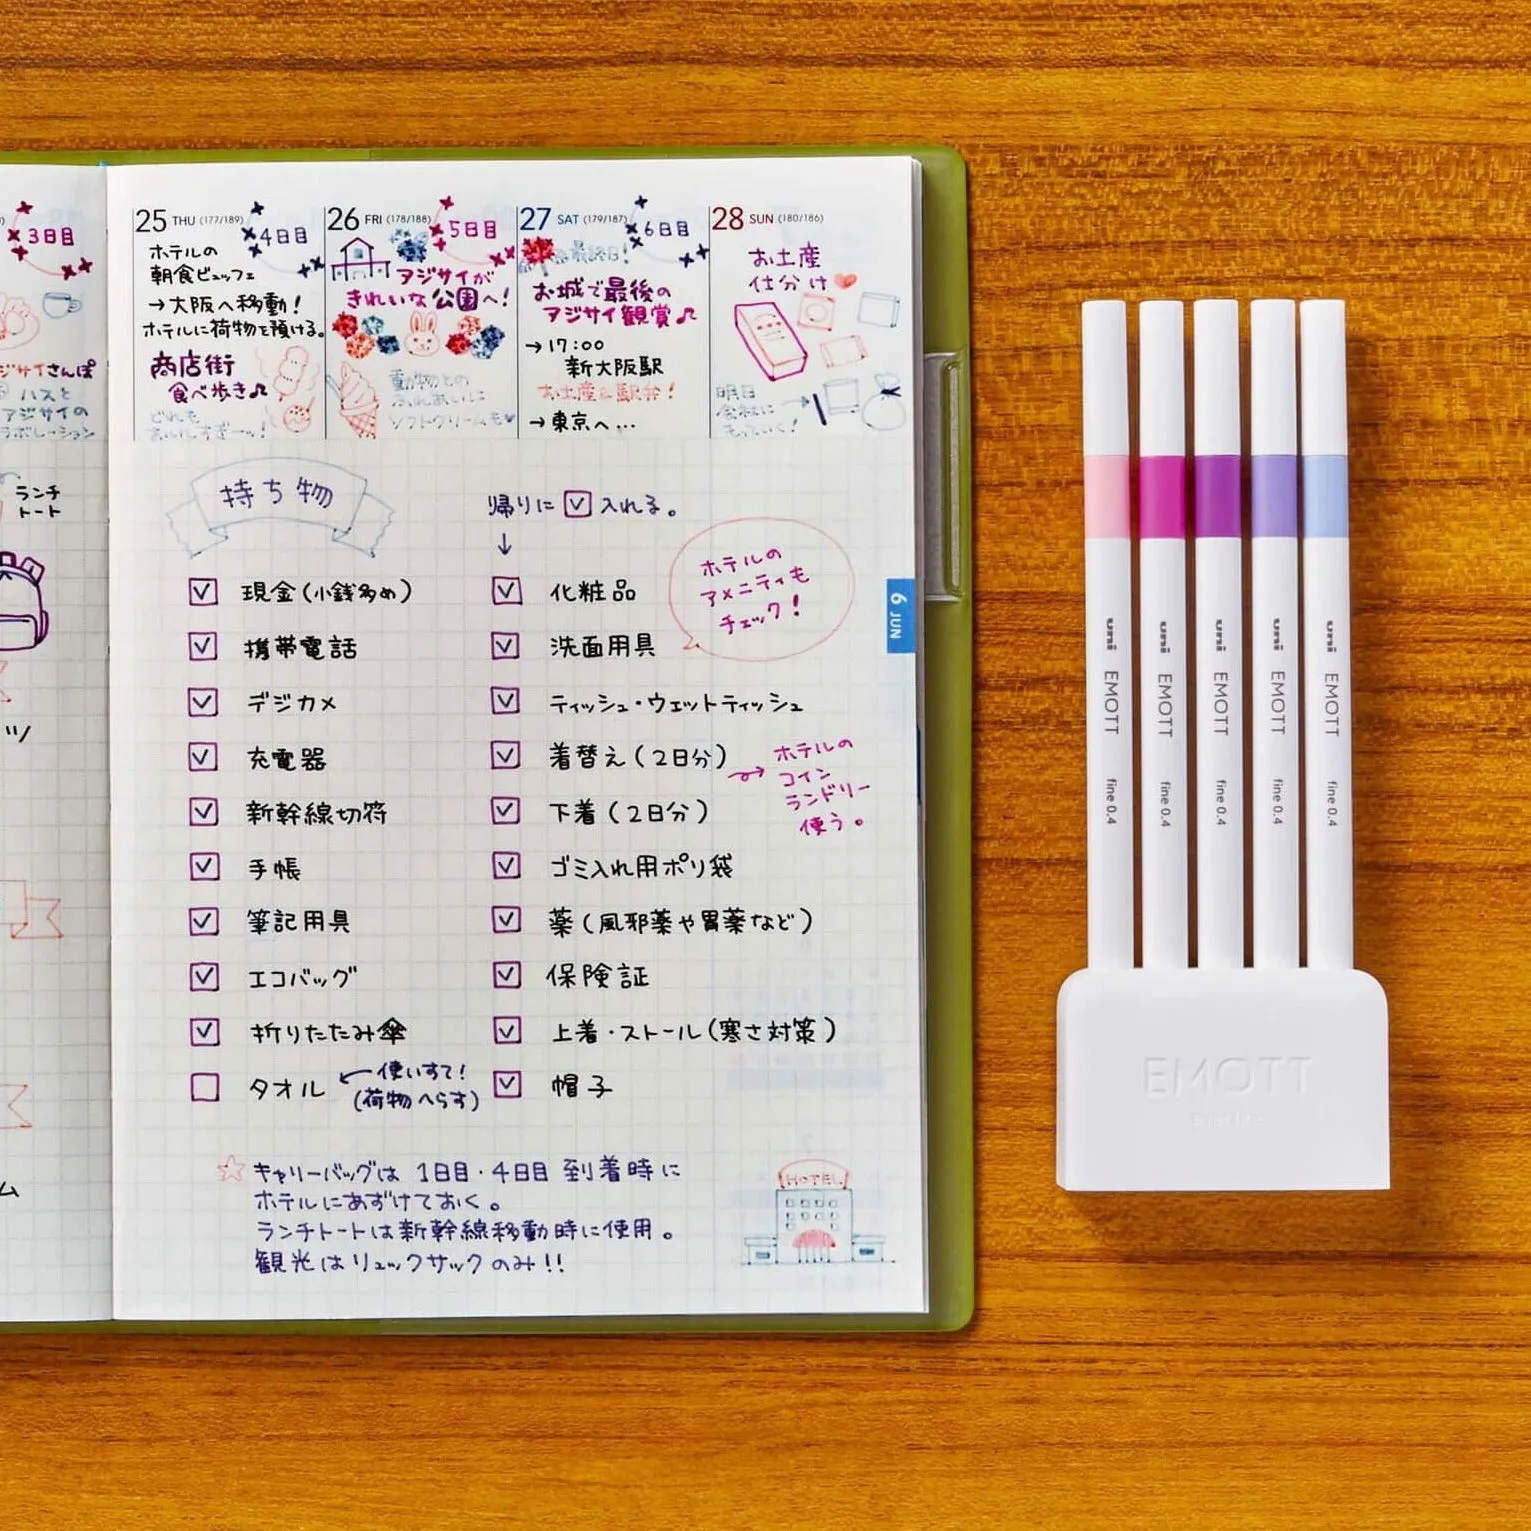 3日目
ジサイさんぽ
ハスと
アジサイの
ラボレーション
ランチ
トート
ツ
ム
25 THU (177/189)
4日目
ホテルの
朝食ビュッフェ
→大阪へ移動！
ホテルに荷物を預ける。
商店街
食べ歩き♪
どれも
おいしすぎーッ！
26 FRI (178/188)
5日目
アジサイが
きれいな公園へ！
動物との
ふれあいに
ソフトクリームも
27 SAT (179/187)
6日目
最終日！
お城で最後の
アジサイ観賞♪
→17:00
新大阪駅
お土産&駅弁！
→東京へ…
28 SUN (180/186)
お土産
仕分け
明日
会社に
もっていく！
持ち物
現金(小銭多め)
携帯電話
デジカメ
充電器
新幹線切符
手帳
筆記用具
エコバッグ
折りたたみ傘
タオル
使いすて！
(荷物へらす)
帰りに☑入れる。
↓
化粧品
洗面用具
ティッシュ・ウェットティッシュ
着替え(2日分)
下着(2日分)
ゴミ入れ用ポリ袋
薬(風邪薬や胃薬など)
保険証
上着・ストール(寒さ対策)
帽子
ホテルの
アメニティも
チェック！
ホテルの
コイン
ランドリー
使う。
6 JUN
☆キャリーバッグは 1日目・4日目 到着時に
ホテルにあずけておく。
ランチトートは新幹線移動時に使用。
観光はリュックサックのみ!!
HOTEL
uni EMOTT fine 0.4
uni EMOTT fine 0.4
uni EMOTT fine 0.4
uni EMOTT fine 0.4
uni EMOTT fine 0.4
EMOTT